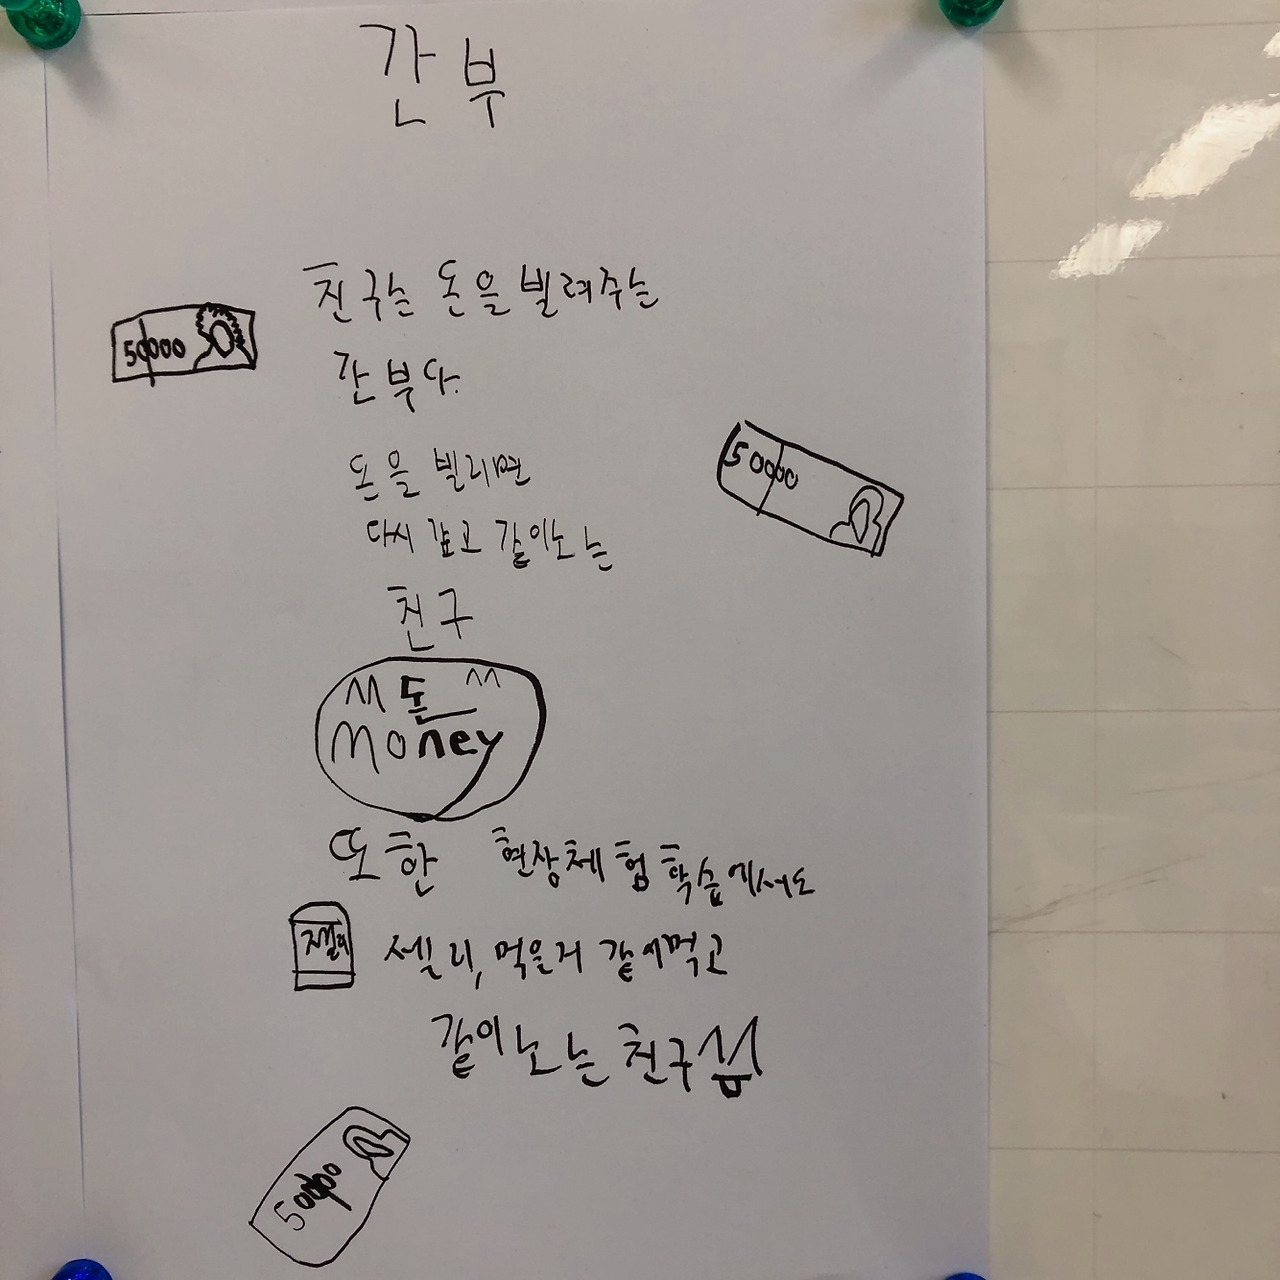 간부
친구는 돈을 빌려주는
50000
간부다.
돈을 빌리면
50000
다시 갚고 같이노는
친구
돈
Money
또한 현장체험학습에서도
젤리
젤리, 먹을거 같이먹고
같이노는 친구
50000